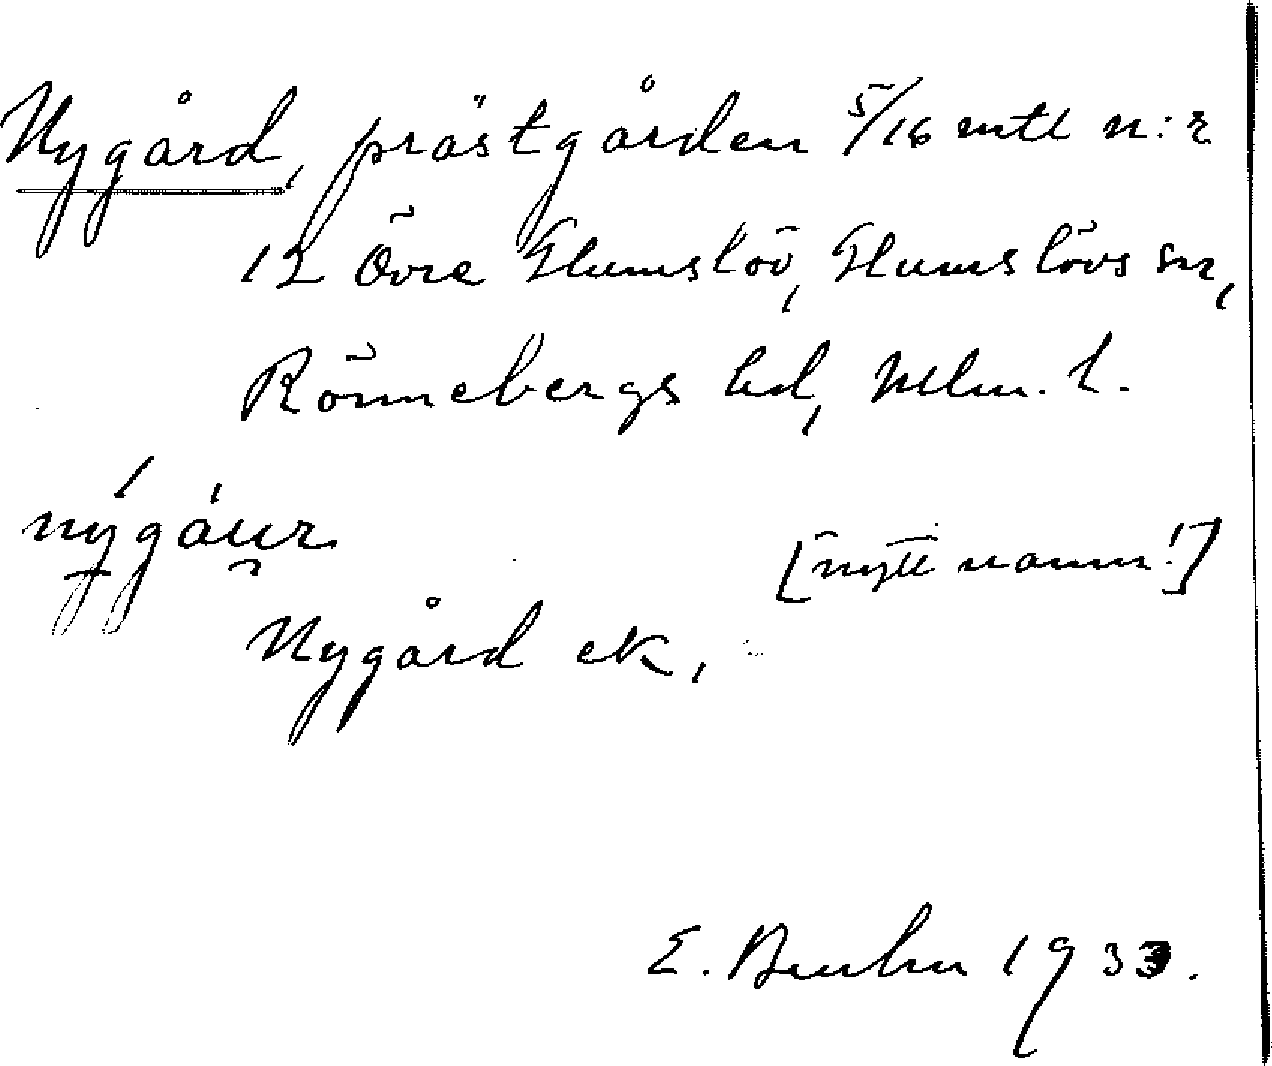 Nygård, prästgården 5/16 mtl n:r
12 Övre Glumslöv, Glumslövs sn,
Rönnebergs hd, Mlm. l.
nýgáu̯r
[nytt namn!]
Nygård ek.
E. Bruhn 1933.